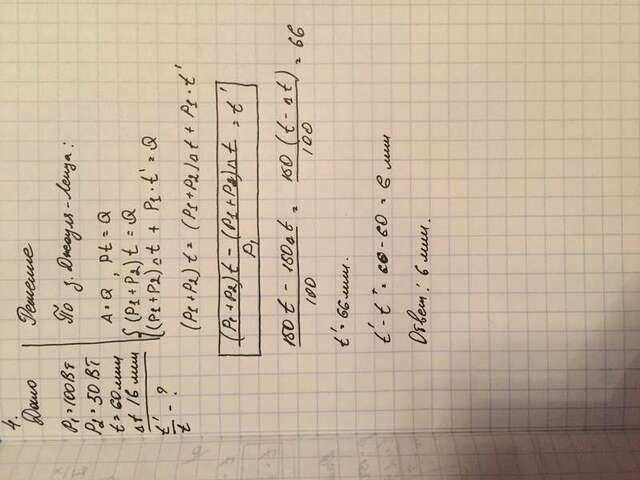 4.
Дано
P₁ = 100 Вт
P₂ = 50 ВТ
t = 60 мин
Δt 16 мин
t'/t - ?
Решение
По з. Джоуля-Ленца:
A = Q, Pt = Q
{ (P₁+P₂) t = Q
(P₁+P₂) Δt + P₁ · t' = Q
(P₁+P₂) t = (P₁+P₂) Δt + P₁ · t'
((P₁+P₂)t - (P₁+P₂)Δt) / P₁ = t'
(150t - 150Δt) / 100 = 150 (t - Δt) / 100 = 66
t' = 66 мин.
t' - t = 66 - 60 = 6 мин
Ответ: 6 мин.